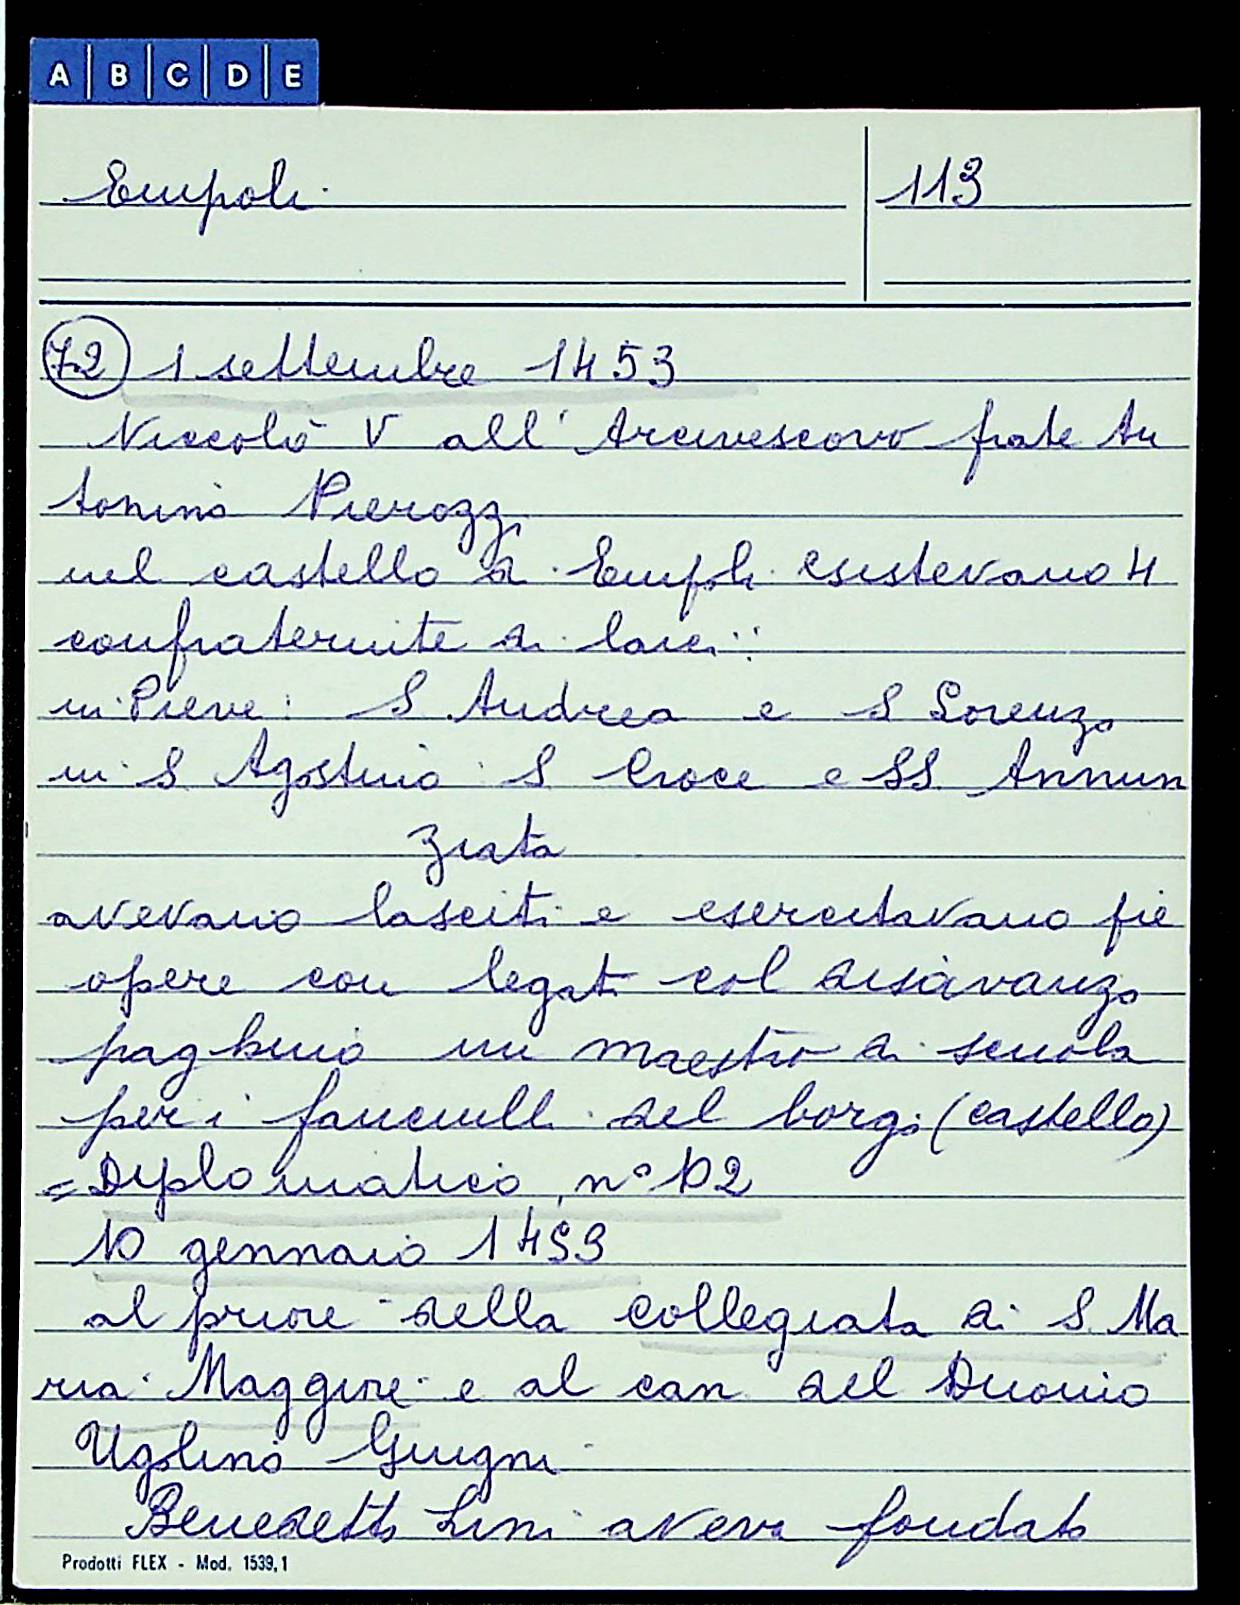 A B C D E
Empoli
113
72 1 settembre 1453
Niccolò V all'Arcivescovo frate An
tonino Pierozzi
nel castello di Empoli esistevano 4
confraternite di laici:
in Pieve: S Andrea e S Lorenzo
in S Agostino: S Croce e SS Annun
ziata
avevano lasciti e esercitavano pie
opere con legati col disavanzo
paghino un maestro di scuola
per i fanciulli del borgo (castello)
= Diplomatico, n° 102
10 gennaio 1453
al priore della collegiata di S. Ma
ria Maggiore e al can del Duomo
Ugolino Giugni
Benedetto Lini aveva fondato
Prodotti FLEX - Mod. 1539,1